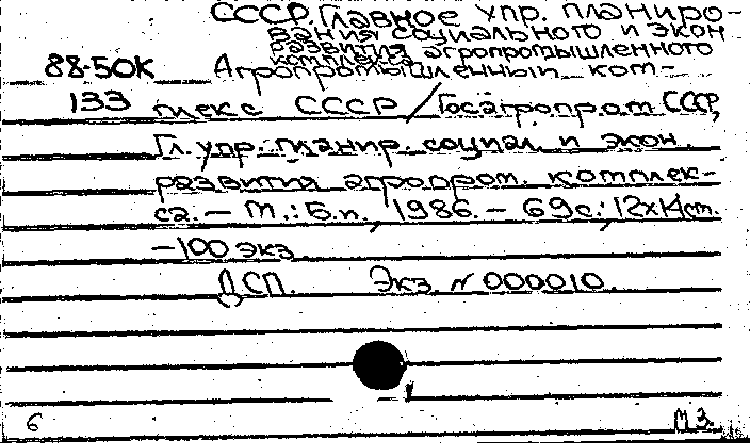 СССР. Главное упр. планиро-
вания социального и экон
развития агропромышленного
комплекса
88-50К Агропромышленный ком-
133 плекс СССР / Госагропром СССР,
Гл. упр. планир. социал. и экон.
развития агропром. комплек-
са. – М.: Б.и., 1986. – 69с.; 12х14см.
– 100 экз
ДСП. Экз. N 000010.
6 М.З.